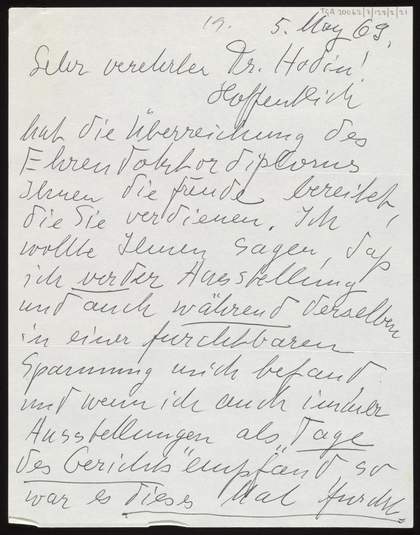 TGA 20062/2/123/2/21
19. 5. May 69.
Sehr verehrter Dr. Hodin!
Hoffentlich
hat die Überreichung des
Ehrendoktordiploms
Ihnen die Freude bereitet,
die Sie verdienen. Ich
wollte Ihnen sagen, daß
ich vor der Ausstellung
und auch während derselben
in einer furchtbaren
Spannung mich befand,
und wenn ich auch immer
Ausstellungen als „Tage
des Gerichts" empfand, so
war es dieses Mal furcht-